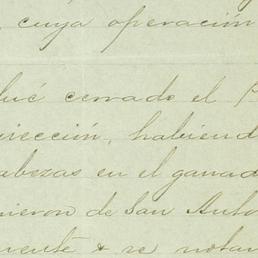 cuya operación
fué cerrado el
irección, habiend
abezas en el ganad
nieron de San Anto
mente & se notan